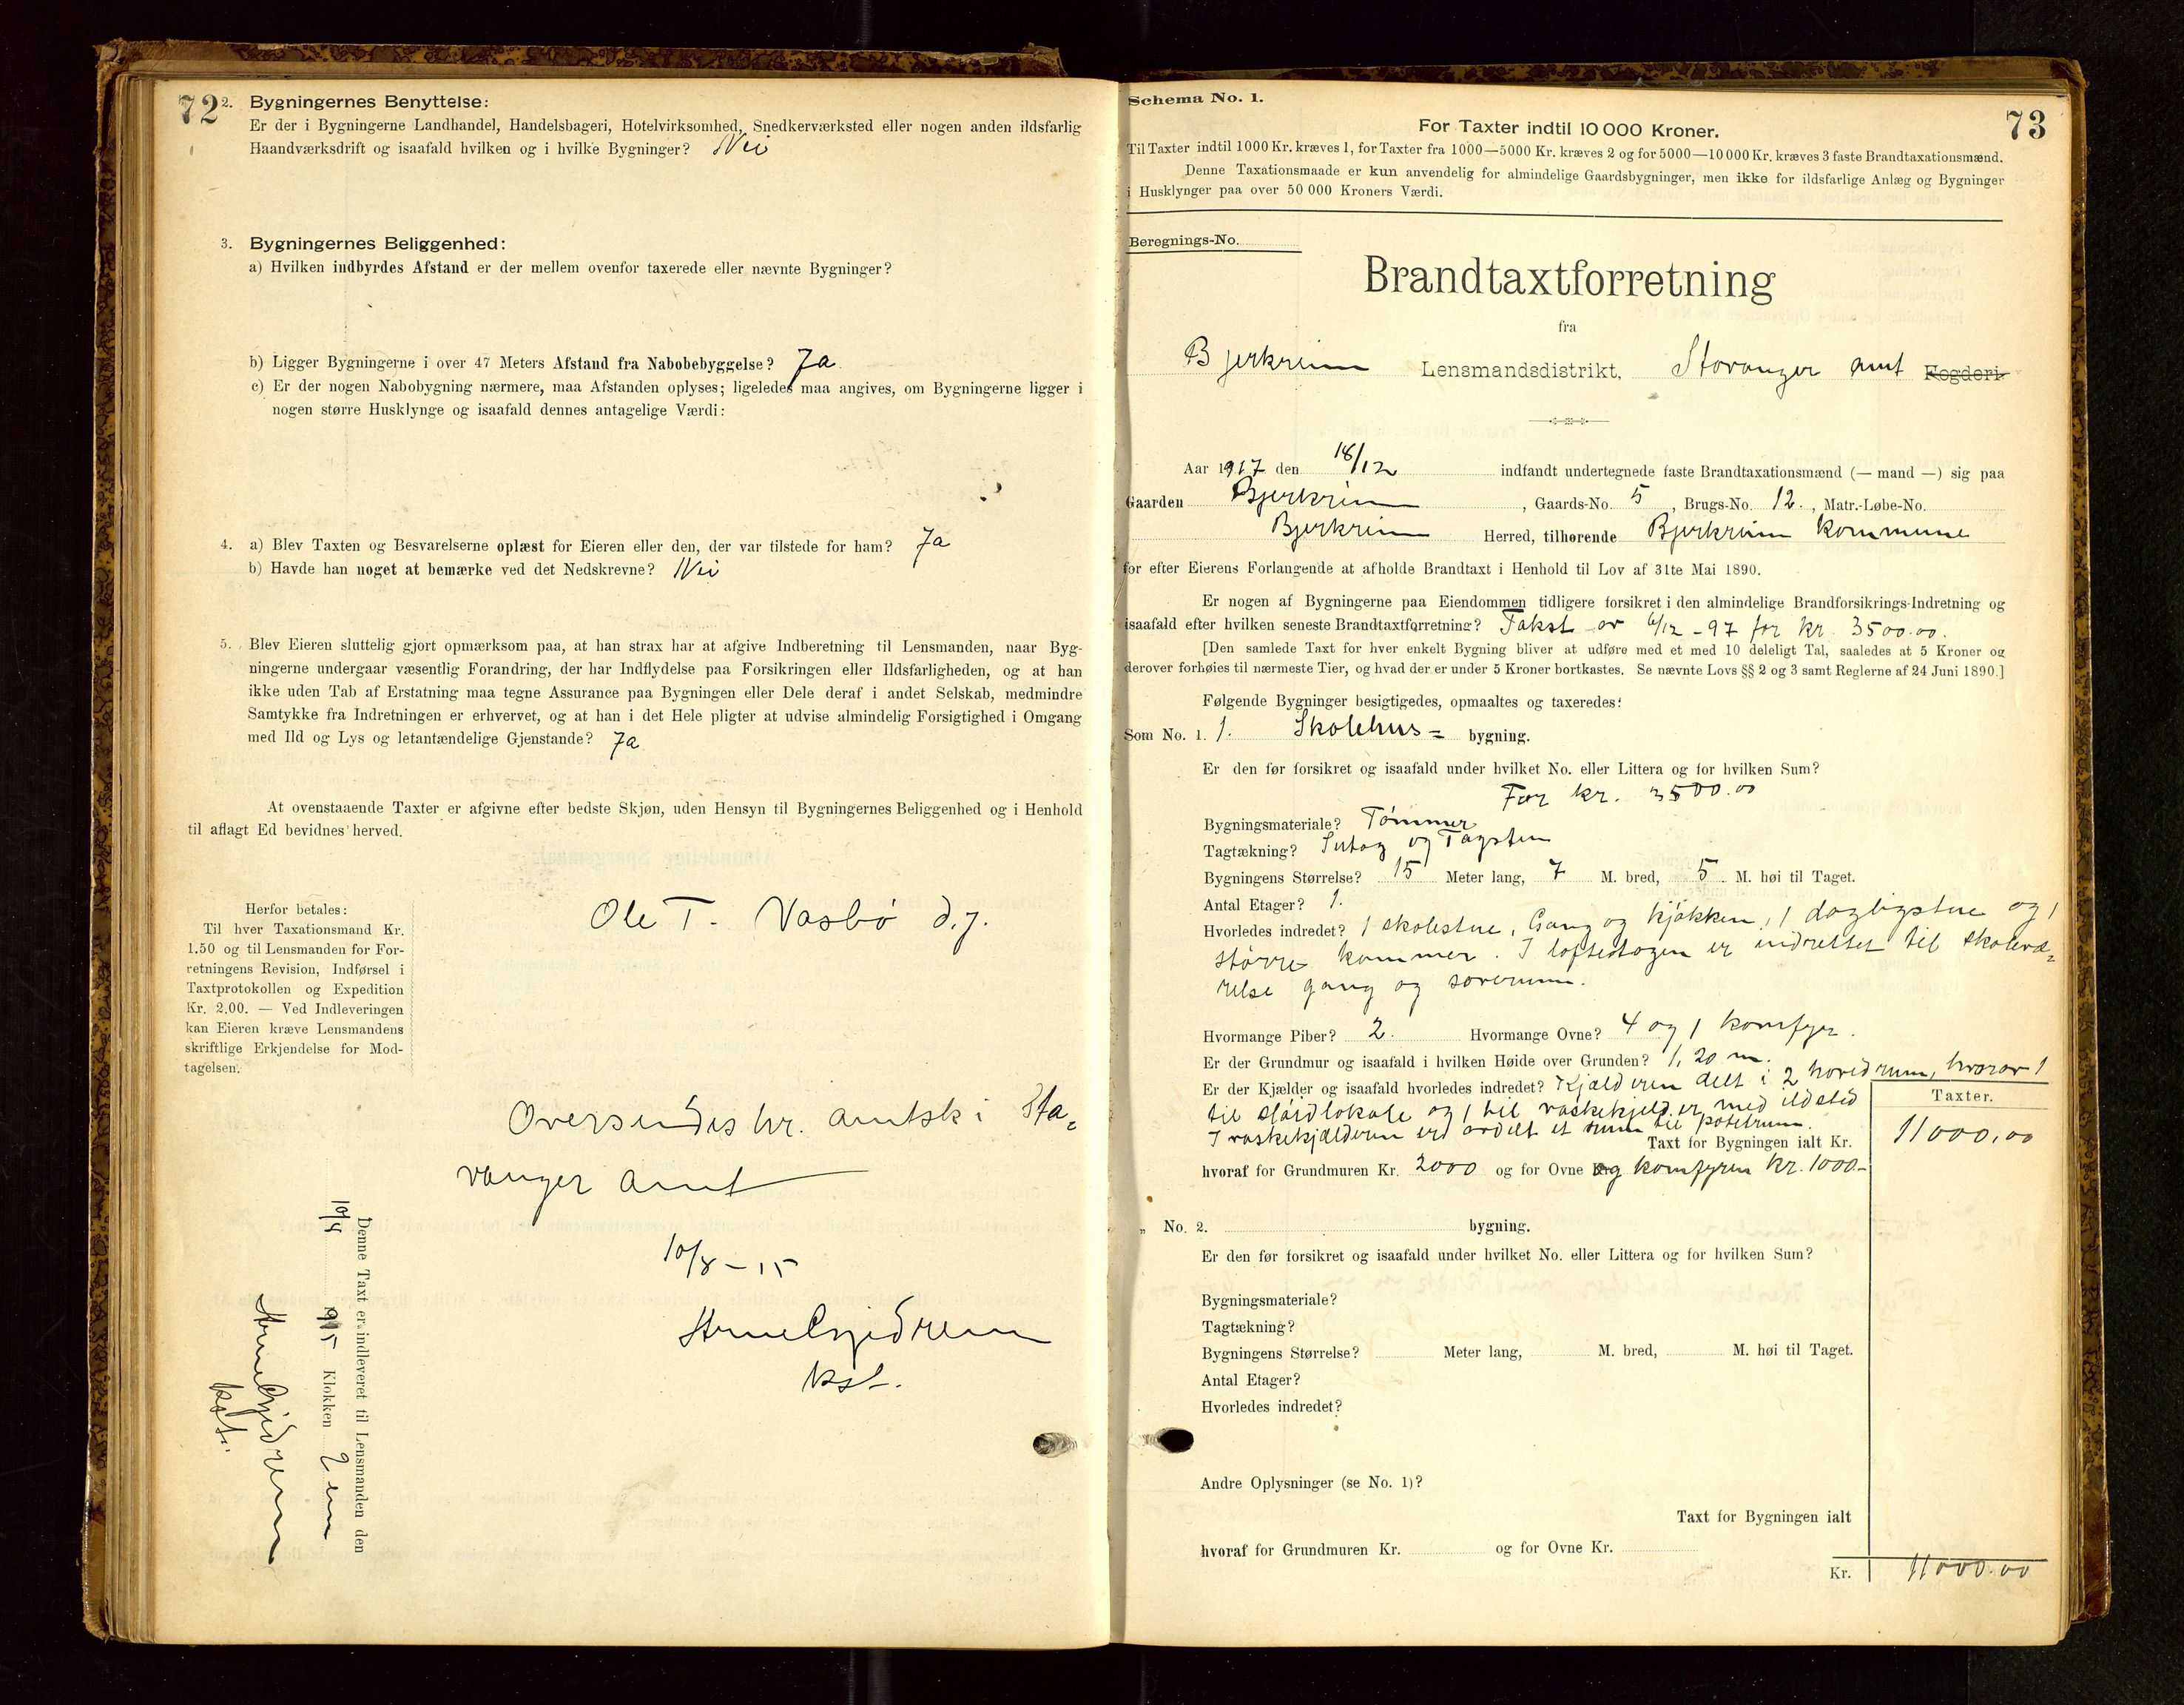 72
2. Bygningernes Benyttelse:
Er der i Bygningerne Landhandel, Handelsbageri, Hotelvirksomhed, Snedkerværksted eller nogen anden ildsfarlig
Haandværksdrift og isaafald hvilken og i hvilke Bygninger? Nei
3. Bygningernes Beliggenhed:
a) Hvilken indbyrdes Afstand er der mellem ovenfor taxerede eller nævnte Bygninger?
b) Ligger Bygningerne i over 47 Meters Afstand fra Nabobebyggelse? Ja
c) Er der nogen Nabobygning nærmere, maa Afstanden oplyses; ligeledes maa angives, om Bygningerne ligger i
nogen større Husklynge og isaafald dennes antagelige Værdi:
4. a) Blev Taxten og Besvarelserne oplæst for Eieren eller den, der var tilstede for ham? Ja
b) Havde han noget at bemærke ved det Nedskrevne? Nei
5. Blev Eieren sluttelig gjort opmærksom paa, at han strax har at afgive Indberetning til Lensmanden, naar Byg-
ningerne undergaar væsentlig Forandring, der har Indflydelse paa Forsikringen eller Ildsfarligheden, og at han
ikke uden Tab af Erstatning maa tegne Assurance paa Bygningen eller Dele deraf i andet Selskab, medmindre
Samtykke fra Indretningen er erhvervet, og at han i det Hele pligter at udvise almindelig Forsigtighed i Omgang
med Ild og Lys og letantændelige Gjenstande? Ja
At ovenstaaende Taxter er afgivne efter bedste Skjøn, uden Hensyn til Bygningernes Beliggenhed og i Henhold
til aflagt Ed bevidnes herved.
Herfor betales:
Til hver Taxationsmand Kr.
1.50 og til Lensmanden for For-
retningens Revision, Indførsel i
Taxtprotokollen og Expedition
Kr. 2.00. — Ved Indleveringen
kan Eieren kræve Lensmandens
skriftlige Erkjendelse for Mod-
tagelsen.
Ole T. Vasbø d.y.
Oversendes hr. amtsk i Sta=
vanger amt
10/8 – 15
kst.
Denne Taxt er indleveret til Lensmanden den
10/8 915 Klokken 2 em
kst.
73
Schema No. 1.
For Taxter indtil 10 000 Kroner.
Til Taxter indtil 1000 Kr. kræves 1, for Taxter fra 1000—5000 Kr. kræves 2 og for 5000—10 000 Kr. kræves 3 faste Brandtaxationsmænd.
Denne Taxationsmaade er kun anvendelig for almindelige Gaardsbygninger, men ikke for ildsfarlige Anlæg og Bygninger
i Husklynger paa over 50 000 Kroners Værdi.
Beregnings-No.
Brandtaxtforretning
fra
Bjerkreim Lensmandsdistrikt, Stavanger amt Fogderi
Aar 1917 den 18/12 indfandt undertegnede faste Brandtaxationsmænd (— mand —) sig paa
Gaarden Bjerkreim, Gaards-No. 5, Brugs-No. 12., Matr.-Løbe-No.
Bjerkreim Herred, tilhørende Bjerkreim kommune
for efter Eierens Forlangende at afholde Brandtaxt i Henhold til Lov af 31te Mai 1890.
Er nogen af Bygningerne paa Eiendommen tidligere forsikret i den almindelige Brandforsikrings-Indretning og
isaafald efter hvilken seneste Brandtaxtforretning? Takst av 6/12 – 97 for kr. 3500.00.
[Den samlede Taxt for hver enkelt Bygning bliver at udføre med et med 10 deleligt Tal, saaledes at 5 Kroner og
derover forhøies til nærmeste Tier, og hvad der er under 5 Kroner bortkastes. Se nævnte Lovs §§ 2 og 3 samt Reglerne af 24 Juni 1890.]
Følgende Bygninger besigtigedes, opmaaltes og taxeredes:
Som No. 1. 1. Skolehus= bygning.
Er den før forsikret og isaafald under hvilket No. eller Littera og for hvilken Sum?
For kr. 3500.00
Bygningsmateriale? Tømmer
Tagtækning? Sutag og Tagsten
Bygningens Størrelse? 15 Meter lang, 7 M. bred, 5 M. høi til Taget.
Antal Etager? 1.
Hvorledes indredet? 1 skolestue, Gang og kjøkken, 1 dagligstue og 1
større kammer. I loftsetagen er indrettet til skolevæ=
relse gang og soverum.
Hvormange Piber? 2. Hvormange Ovne? 4 og 1 komfyr.
Er der Grundmur og isaafald i hvilken Høide over Grunden? 1,20 m.
Er der Kjælder og isaafald hvorledes indredet? Kjælderen delt i 2 hovedrum, hvorav 1
til sløidlokale og 1 til vaskekjelder med ildsted
I vaskekjælderen er avdelt et rum til potetrum.
Taxter.
Taxt for Bygningen ialt Kr. 11000,00
hvoraf for Grundmuren Kr. 2000 og for Ovne og komfyren Kr. 1000–
„ No. 2. bygning.
Er den før forsikret og isaafald under hvilket No. eller Littera og for hvilken Sum?
Bygningsmateriale?
Tagtækning?
Bygningens Størrelse? Meter lang, M. bred, M. høi til Taget.
Antal Etager?
Hvorledes indredet?
Andre Oplysninger (se No. 1)?
Taxt for Bygningen ialt
hvoraf for Grundmuren Kr. og for Ovne Kr.
Kr. 11000.00